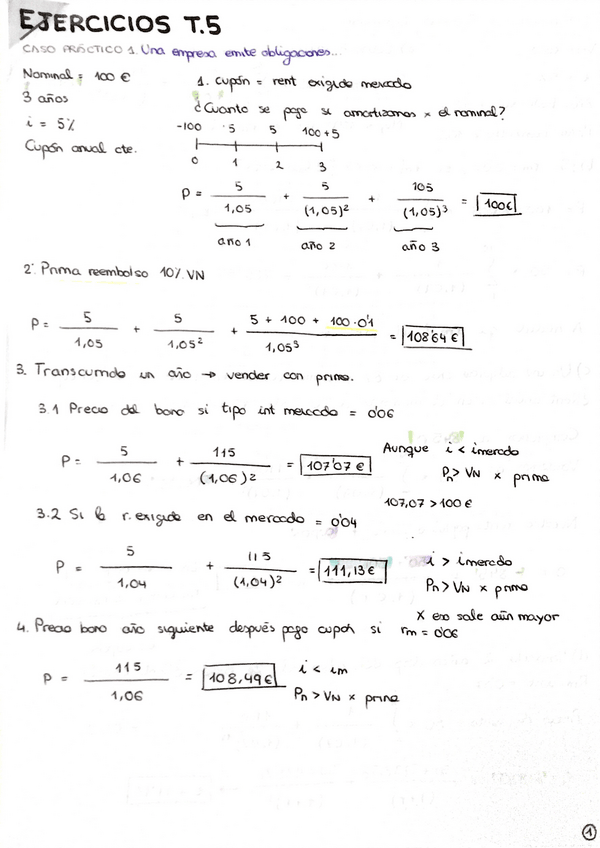 EJERCICIOS T.5
CASO PRÁCTICO 1. Una empresa emite obligaciones...
Nominal = 100 €
1. Cupón = rent exigida mercado
3 años
¿Cuanto se paga si amortizamos x el nominal?
i = 5%
-100 5 5 100+5
Cupón anual cte.
0 1 2 3
P = 5/1,05 + 5/(1,05)² + 105/(1,05)³ = 100€
año 1 año 2 año 3
2. Prima reembolso 10% VN
P = 5/1,05 + 5/1,05² + 5 + 100 + 100·0'1/1,05³ = 108'64 €
3. Transcurrido un año → vender con prima.
3.1 Precio del bono si tipo int mercado = 0'06
P = 5/1,06 + 115/(1,06)² = 107'07 €
Aunque i < imercado
Pn > VN x prima
107,07 > 100 €
3.2 Si la r. exigida en el mercado = 0'04
P = 5/1,04 + 115/(1,04)² = 111,13€
i > imercado
Pn > VN x prima
x eso sale aún mayor
4. Precio bono año siguiente después pago cupón si rm = 0'06
P = 115/1,06 = 108,49€
i < im
Pn > VN x prima
1